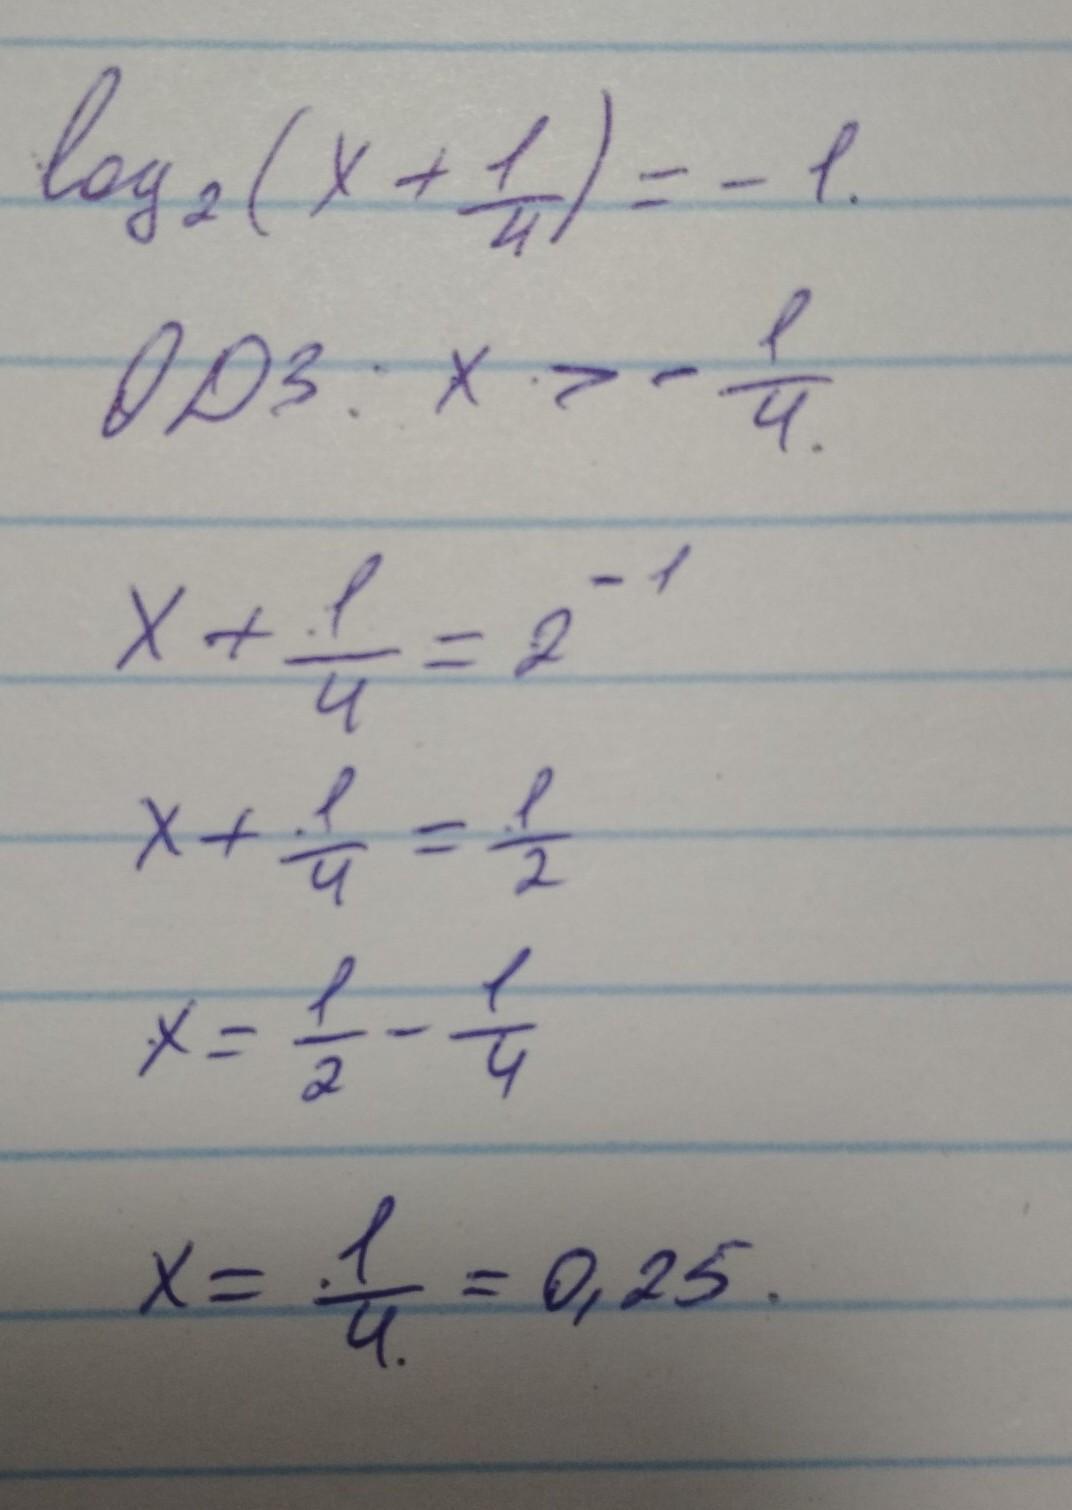 log₂(x + 1/4) = -1.
ОДЗ: x > -1/4.
x + 1/4 = 2⁻¹
x + 1/4 = 1/2
x = 1/2 - 1/4
x = 1/4 = 0,25.